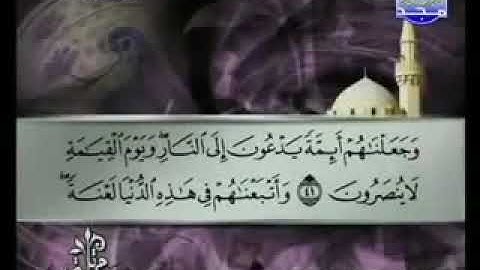 مجد
وَجَعَلْنَٰهُمْ أَئِمَّةً يَدْعُونَ إِلَى ٱلنَّارِ ۖ وَيَوْمَ ٱلْقِيَٰمَةِ
لَا يُنصَرُونَ ٤١ وَأَتْبَعْنَٰهُمْ فِى هَٰذِهِ ٱلدُّنْيَا لَعْنَةً ۖ